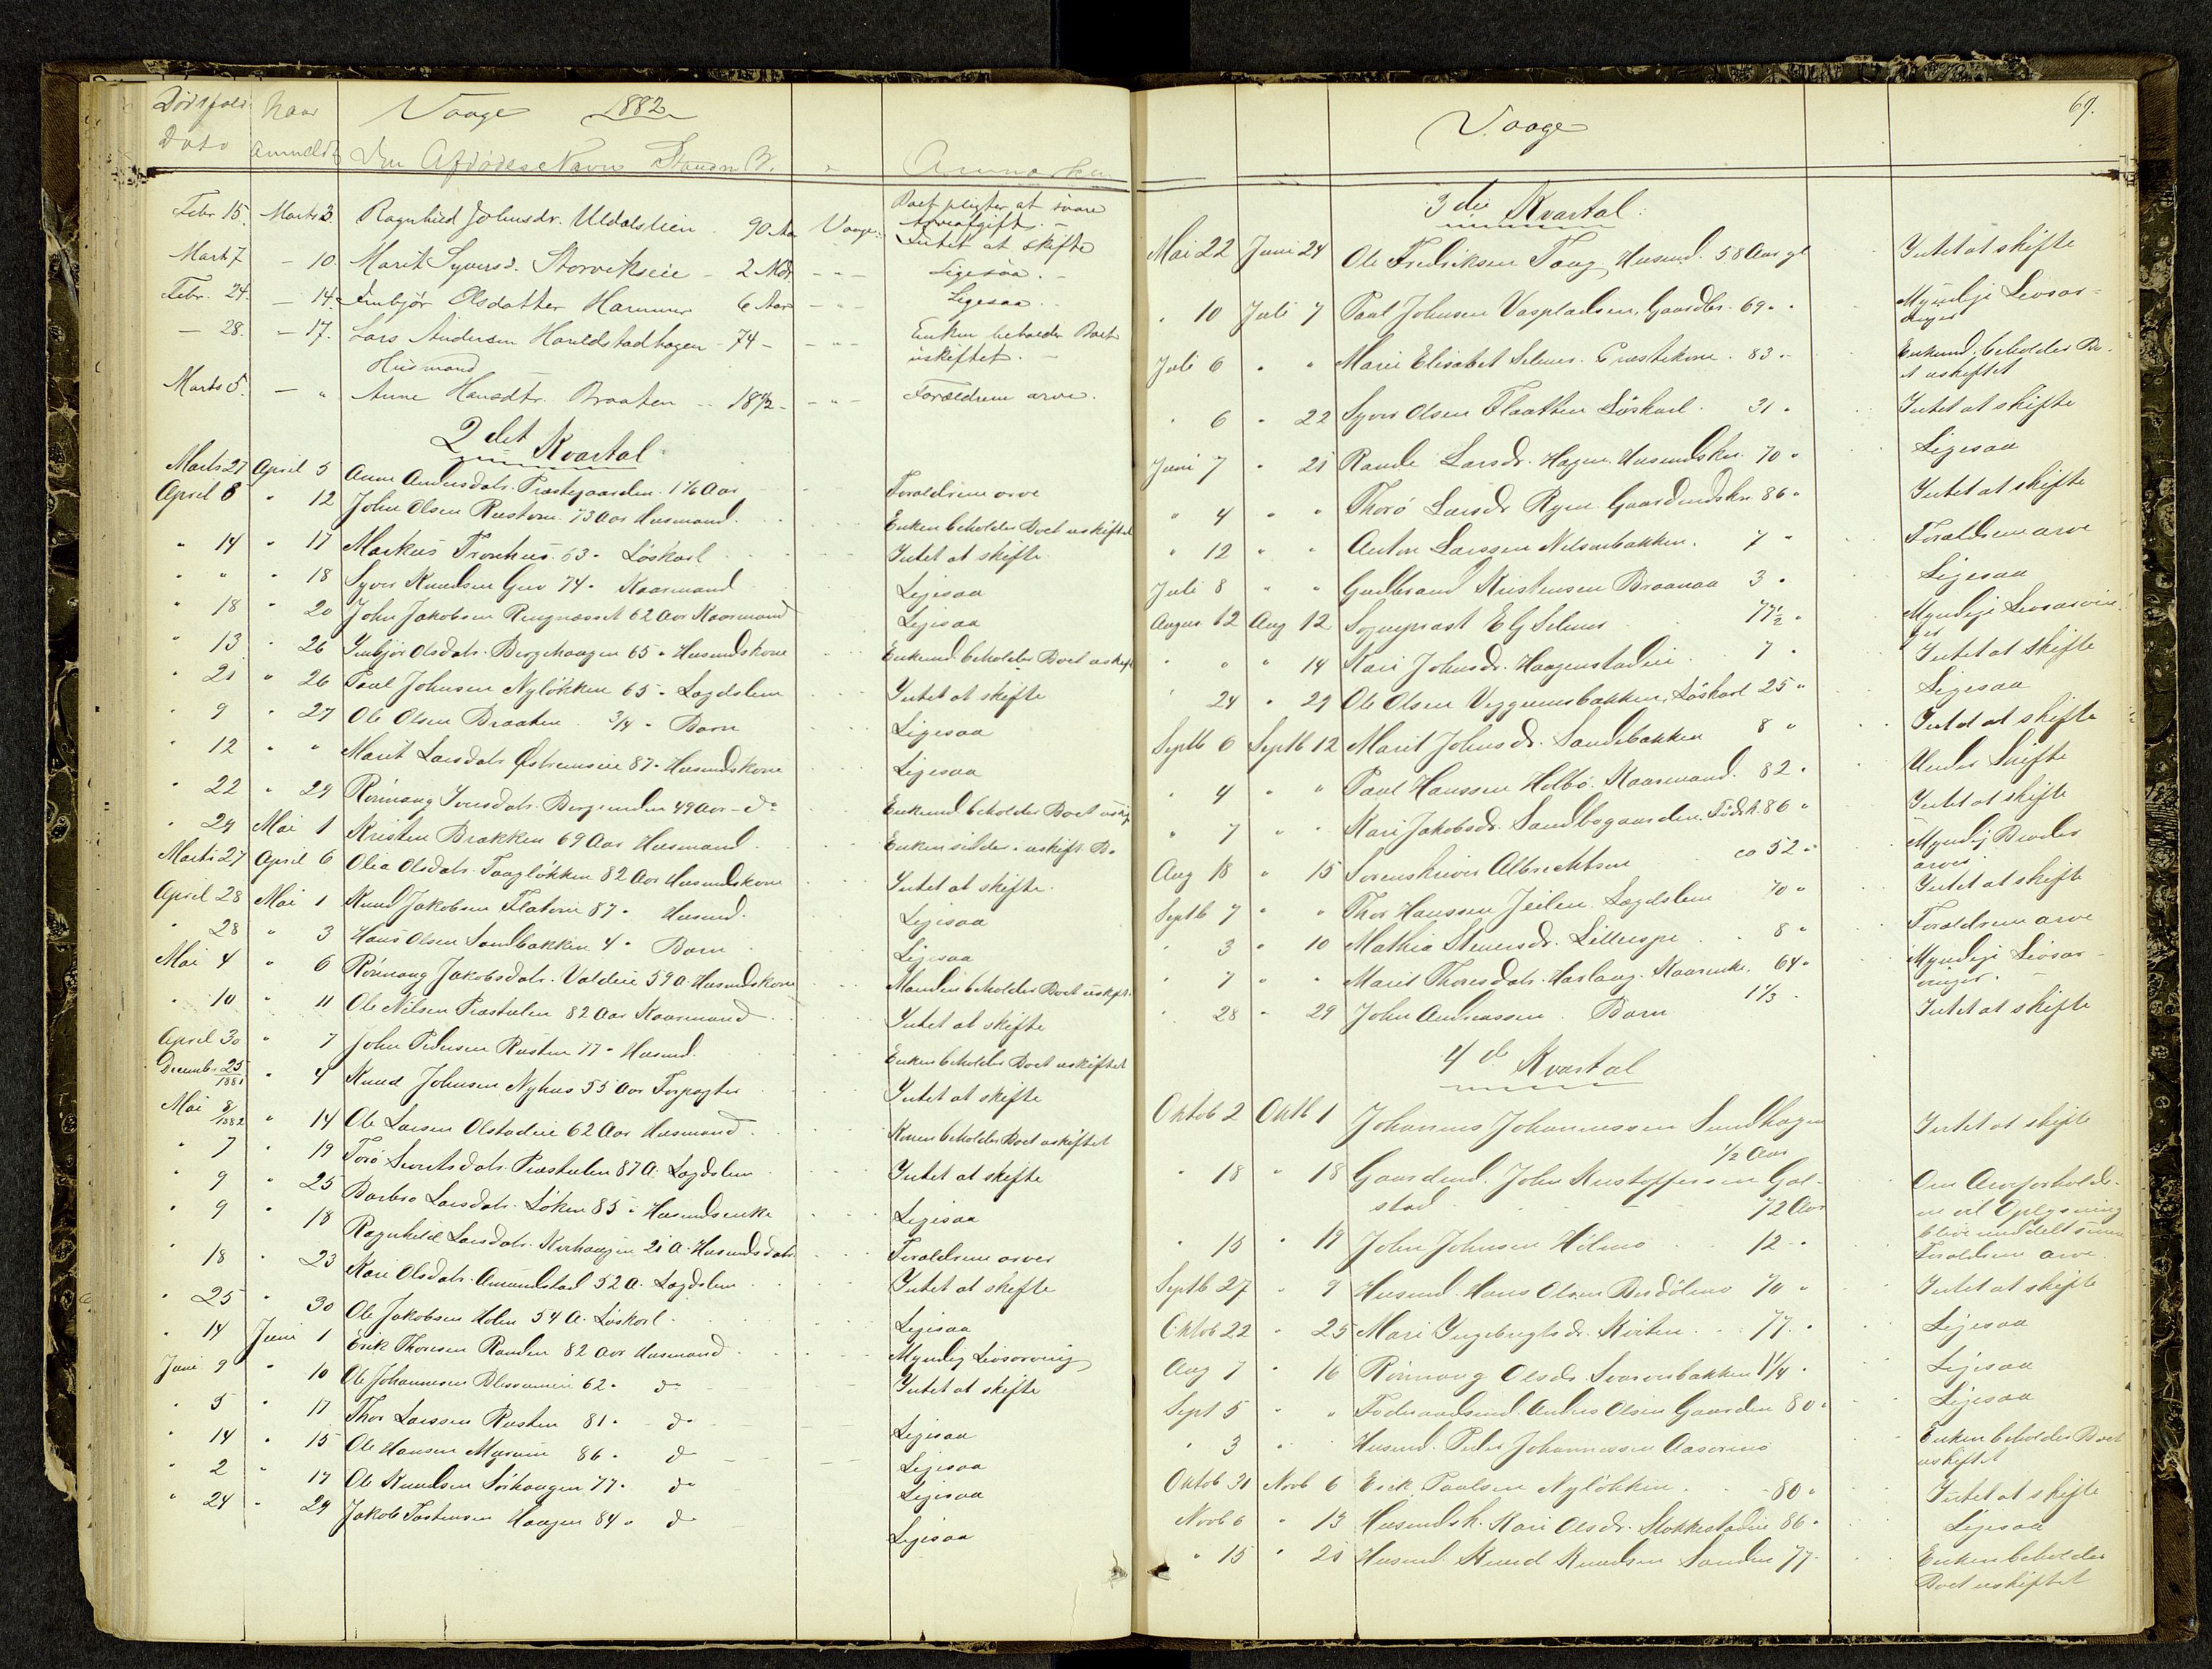 Dødsfald Naar Vaage 1882
Dato anmeldt Den Afdødes Navn Stand m. V. Anmærkn
Febr 15. Marts 3. Ragnhild Johnsdr. Uldalslien 90 Aar Vaage. Boet pligter at svare Arveafgift. -
Mart 7 - 10. Marit Syversd. Storvikseie - 2 Mdr. - - - Intet at skifte
Febr. 24. - 14. Imbjør Olsdatter Hammer 6 Aar - - Ligesaa. -
Ligesaa. -
- 28. - 17. Lars Andersen Haraldstadhagen - 74 - - - - Enken beholder Boet
Husmand uskiftet. -
Marts 5. - " Anne Hansdtr. Braaten - 18 1/2 - - - - Forældrene arve.
2det Kvartal.
Marts 27 April 5 Anne Andersdatr. Præstegaarden. 1 1/6 Aar Forældrene arve
April 8 " 12 John Olsen Rusten. 73 Aar Husmand. Enken beholder Boet uskiftet
" 14 " 17 Markus Tronhus. 63 " Løskarl Intet at skifte
" " " 18 Syver Knudsen 74 " Kaarmand Ligesaa
" 18 " 20 John Jakobsen 62 Aar Kaarmand Ligesaa
" 13 " 26 Imbjør Olsdatr. Bergehaugen 65 " Husmdskone Enkemd. beholder Boet uskift
" 21 " 26 Paul Johnsen Nyløkken 65 " Lægdslem Intet at skifte
" 9 " 27 Ole Olsen Braaten 3/4 " Barn Ligesaa
" 12 " " Marit Larsdatr. 87 " Husmdskone Ligesaa
" 22 " 29 Rønnaug Iversdatr. 49 Aar - do Enkemd. beholder Boet uskif
" 24 Mai 1 Kristen Brækken 69 Aar Husmand. Enken sidder i uskift. Bo
Marts 27 April 6 Olia Olsdatr. Taagløkken 82 Aar Husmdskone Intet at skifte.
April 28 Mai 1 Knud Jakobsen 87 " Husmd. Ligesaa
" 28 " 3 Hans Olsen Sandbakken 4 " Barn Ligesaa
Mai 4 " 6 Rønnaug Jakobsdatr. 59 A. Husmdskone Manden beholder Boet uskift.
" 10 " 11 Ole Nilsen 82 Aar Kaarmand Intet at skifte
April 30 " 7 John Pedersen Rusten 77 " Husmd. Enken beholder Boet uskiftet
Decembr. 25/1881 " 4 Knud Johnsen Nyhus 55 Aar Forpagter Intet at skifte
Mai 8/1882 " 14 Ole Larsen Olstadeie 62 Aar Husmand Konen beholder Boet uskiftet
" 7 " 19 Torø 87 A. Lægdslem Intet at skifte
" 9 " 25 Barbro Larsdatr. Løken 85 " Husmdsenke Ligesaa
" 9 " 18 Ragnhild Larsdatr. 21 A. Husmdsdatr Forældrene arver
" 18 " 23 Kari Olsdatr. Amundstad 52 A. Lægdslem Intet at skifte
" 25 " 30 Ole Jakobsen Holen 54 A. Løskarl Ligesaa
" 14 Juni 1 Erik Thoresen Randen 82 Aar Husmand Myndig Livsarving
Juni 9 " 10 Ole Johannesen 62 " do Intet at skifte
" 5 " 17 Thor Larssen Rusten 81 " do Ligesaa
" 14 " 15 Ole Hansen 86 " do Ligesaa
" 2 " 17 Ole Knudsen Sørhaugen 77 " do Ligesaa
" 24 " 29 Jakob Tostensen Haugen 84 " do Ligesaa
Vaage 69.
3die Kvartal:
Mai 22 Juni 24 Ole Fredriksen Taag Husmd. 58 Aar gl Intet at skifte
" 10 Juli 7 Paul Johnsen Gaardbr. 69 " Myndige Livsarvinger
Juli 6 " " Marie Elisabet Selmer. Præstekone. 83 " Enkemd. beholder Boet uskiftet
" 6 " 22 Syver Olsen Flaatten Løskarl 31 " Intet at skifte
Juni 7 " 21 Larsdr. Hagen Husmdskr. 70 " Ligesaa
" 4 " " Thorø Larsdr. Gaardmdskr. 86 " Intet at skifte
" 12 " " Anton Larssen Nilsenbakken. 7 " Forældrene arve
Juli 8 " " Gudbrand Kristensen 3 " Ligesaa
August 12 Aug 12 Sogneprest Selmer 77 1/2 " Myndige Livsarvinger
" " " 14 Kari Johnsdr. Haagenstadeie 7 " Intet at skifte
" 24 " 29 Ole Olsen Veggumsbakken, Løskarl 25 " Ligesaa
Septb 6 Septb 12 Marit Johnsdr. Sandbakken 8 " Intet at skifte
" 4 " " Paul Hanssen Holbø. Kaarmand. 82 " Under Skifte
" 7 " " Kari Jakobsdr. Sandbogaarden. 86 " Intet at skifte
Aug 18 " 15 Sorenskriver Albrechtsen ca 52 " Myndig Broder arver
Septb 7 " " Thor Hanssen Lægdslem 70 " Intet at skifte
" 3 " 10 Mathia 8 " Forældrene arve
" 7 " " Marit Thoresdatr. Kaarenke. 64 " Myndige Livsarvinger.
" 28 " 29 John Andreassen. Barn 1 1/3 " Intet at skifte
4de Kvartal
Oktob 2 Oktb 1 Johannes Johannessen Sandhagen 1/2 Aar Intet at skifte
" 18 " 18 Gaardmd. John Kristoffersen Galstad 72 Aar Om Arveforholdene vil Oplysning blive meddelt senere
" 15 " 19 John Johnsen Hilmo 12 " Forældrene arve.
Septb 27 " 9 Husmd. Hans Olsen 70 " Intet at skifte
Oktob 22 " 25 Mari Ingebrigtsdr. Kviten 77 " Ligesaa
Aug 7 " 16 Rønnaug Olsdr. 1 1/4 " Ligesaa
Sept 5 " " Føderaadsmd. Anders Olsen Gaarden 80 " Ligesaa
" 3 " Husmd. Peder Johannessen Enken beholder Boet uskiftet
Oktob 31 Novb 6 Erik Paulsen Nyløkken. 80 " Intet at skifte
Novb 6 " 13 Husmdsk. Kari Olsdr. Stokkestadeie 86 " Ligesaa
" 15 " 21 Husmd. Knud Knudsen Sanden 77 " Enken beholder
Boet uskiftet